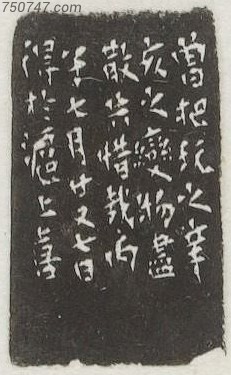 750747.com
曾把玩之辛
亥之變物盡
散失惜哉丙
午七月廿又七日
得於滬上善